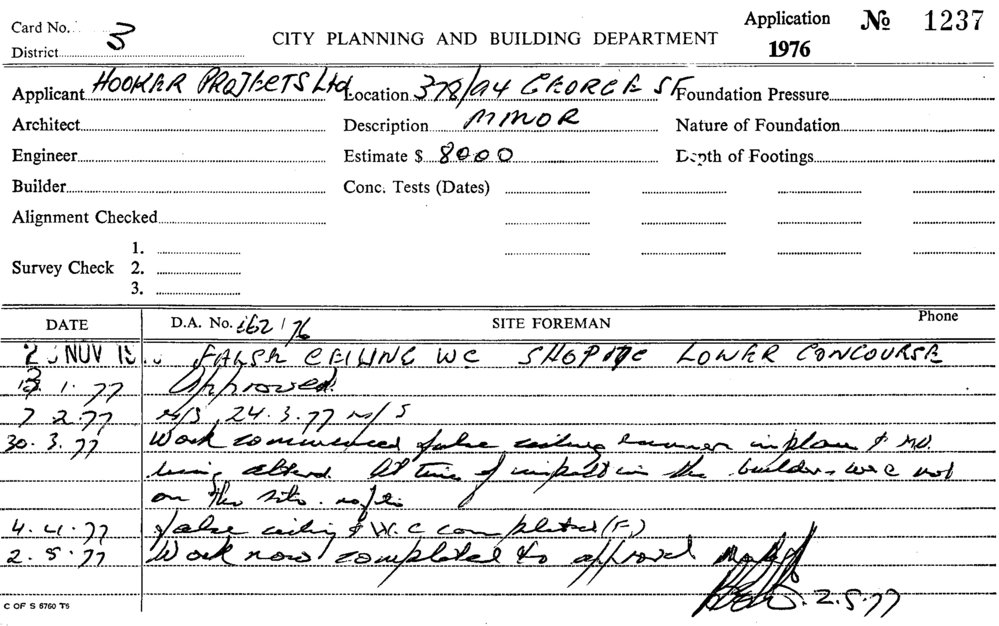 Card No. 3 Application № 1237
District CITY PLANNING AND BUILDING DEPARTMENT 1976
Applicant HOOKER PROJECTS Ltd Location 378/94 GEORGE ST Foundation Pressure
Architect Description MINOR Nature of Foundation
Engineer Estimate $ 8000 Depth of Footings
Builder Conc. Tests (Dates)
Alignment Checked
1.
Survey Check 2.
3.
DATE D.A. No. 162/76 SITE FOREMAN Phone
NOV FALSE CEILING WC SHOP LOWER CONCOURSE
1.77 Approved.
7 2.77 N/S 24.3.77 N/S
30.3.77 Work commenced false ceiling in place &
being altered. At time of the builders were not
on the site.
4.4.77 false ceiling & W.C completed (F.)
2.5.77 Work now completed to approval
2.5.77
C OF S 6760 T6